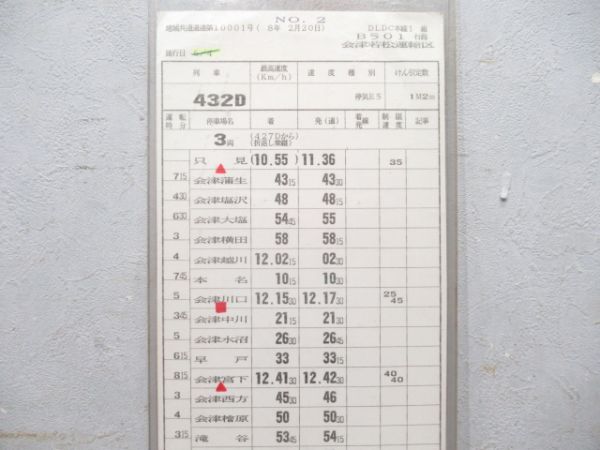 NO. 2
地域共通達達第10001号( 8年 2月20日)
DLDC本線1 組
B501 行路
会津若松運輸区
施行日
列車 最高速度(Km/h) 速度種別 けん引定数
432D 停気E5 1M2m
運転時分 停車場名 着 発(通) 着線発線 制限速度 記事
3両 (427Dから)(折返し乗継)
只見 (10.55) 11.36 35
7 15 会津蒲生 43 15 43 30
4 30 会津塩沢 48 48 15
6 30 会津大塩 54 45 55
3 会津横田 58 58 15
4 会津越川 12.02 15 02 30
7 45 本名 10 15 10 30
5 会津川口 12.15 30 12.17 30 25 45
3 45 会津中川 21 15 21 30
5 会津水沼 26 30 26 45
6 15 早戸 33 33 15
8 15 会津宮下 12.41 30 12.42 30 40 40
3 会津西方 45 30 46
4 会津檜原 50 50 30
3 15 滝谷 53 45 54 15